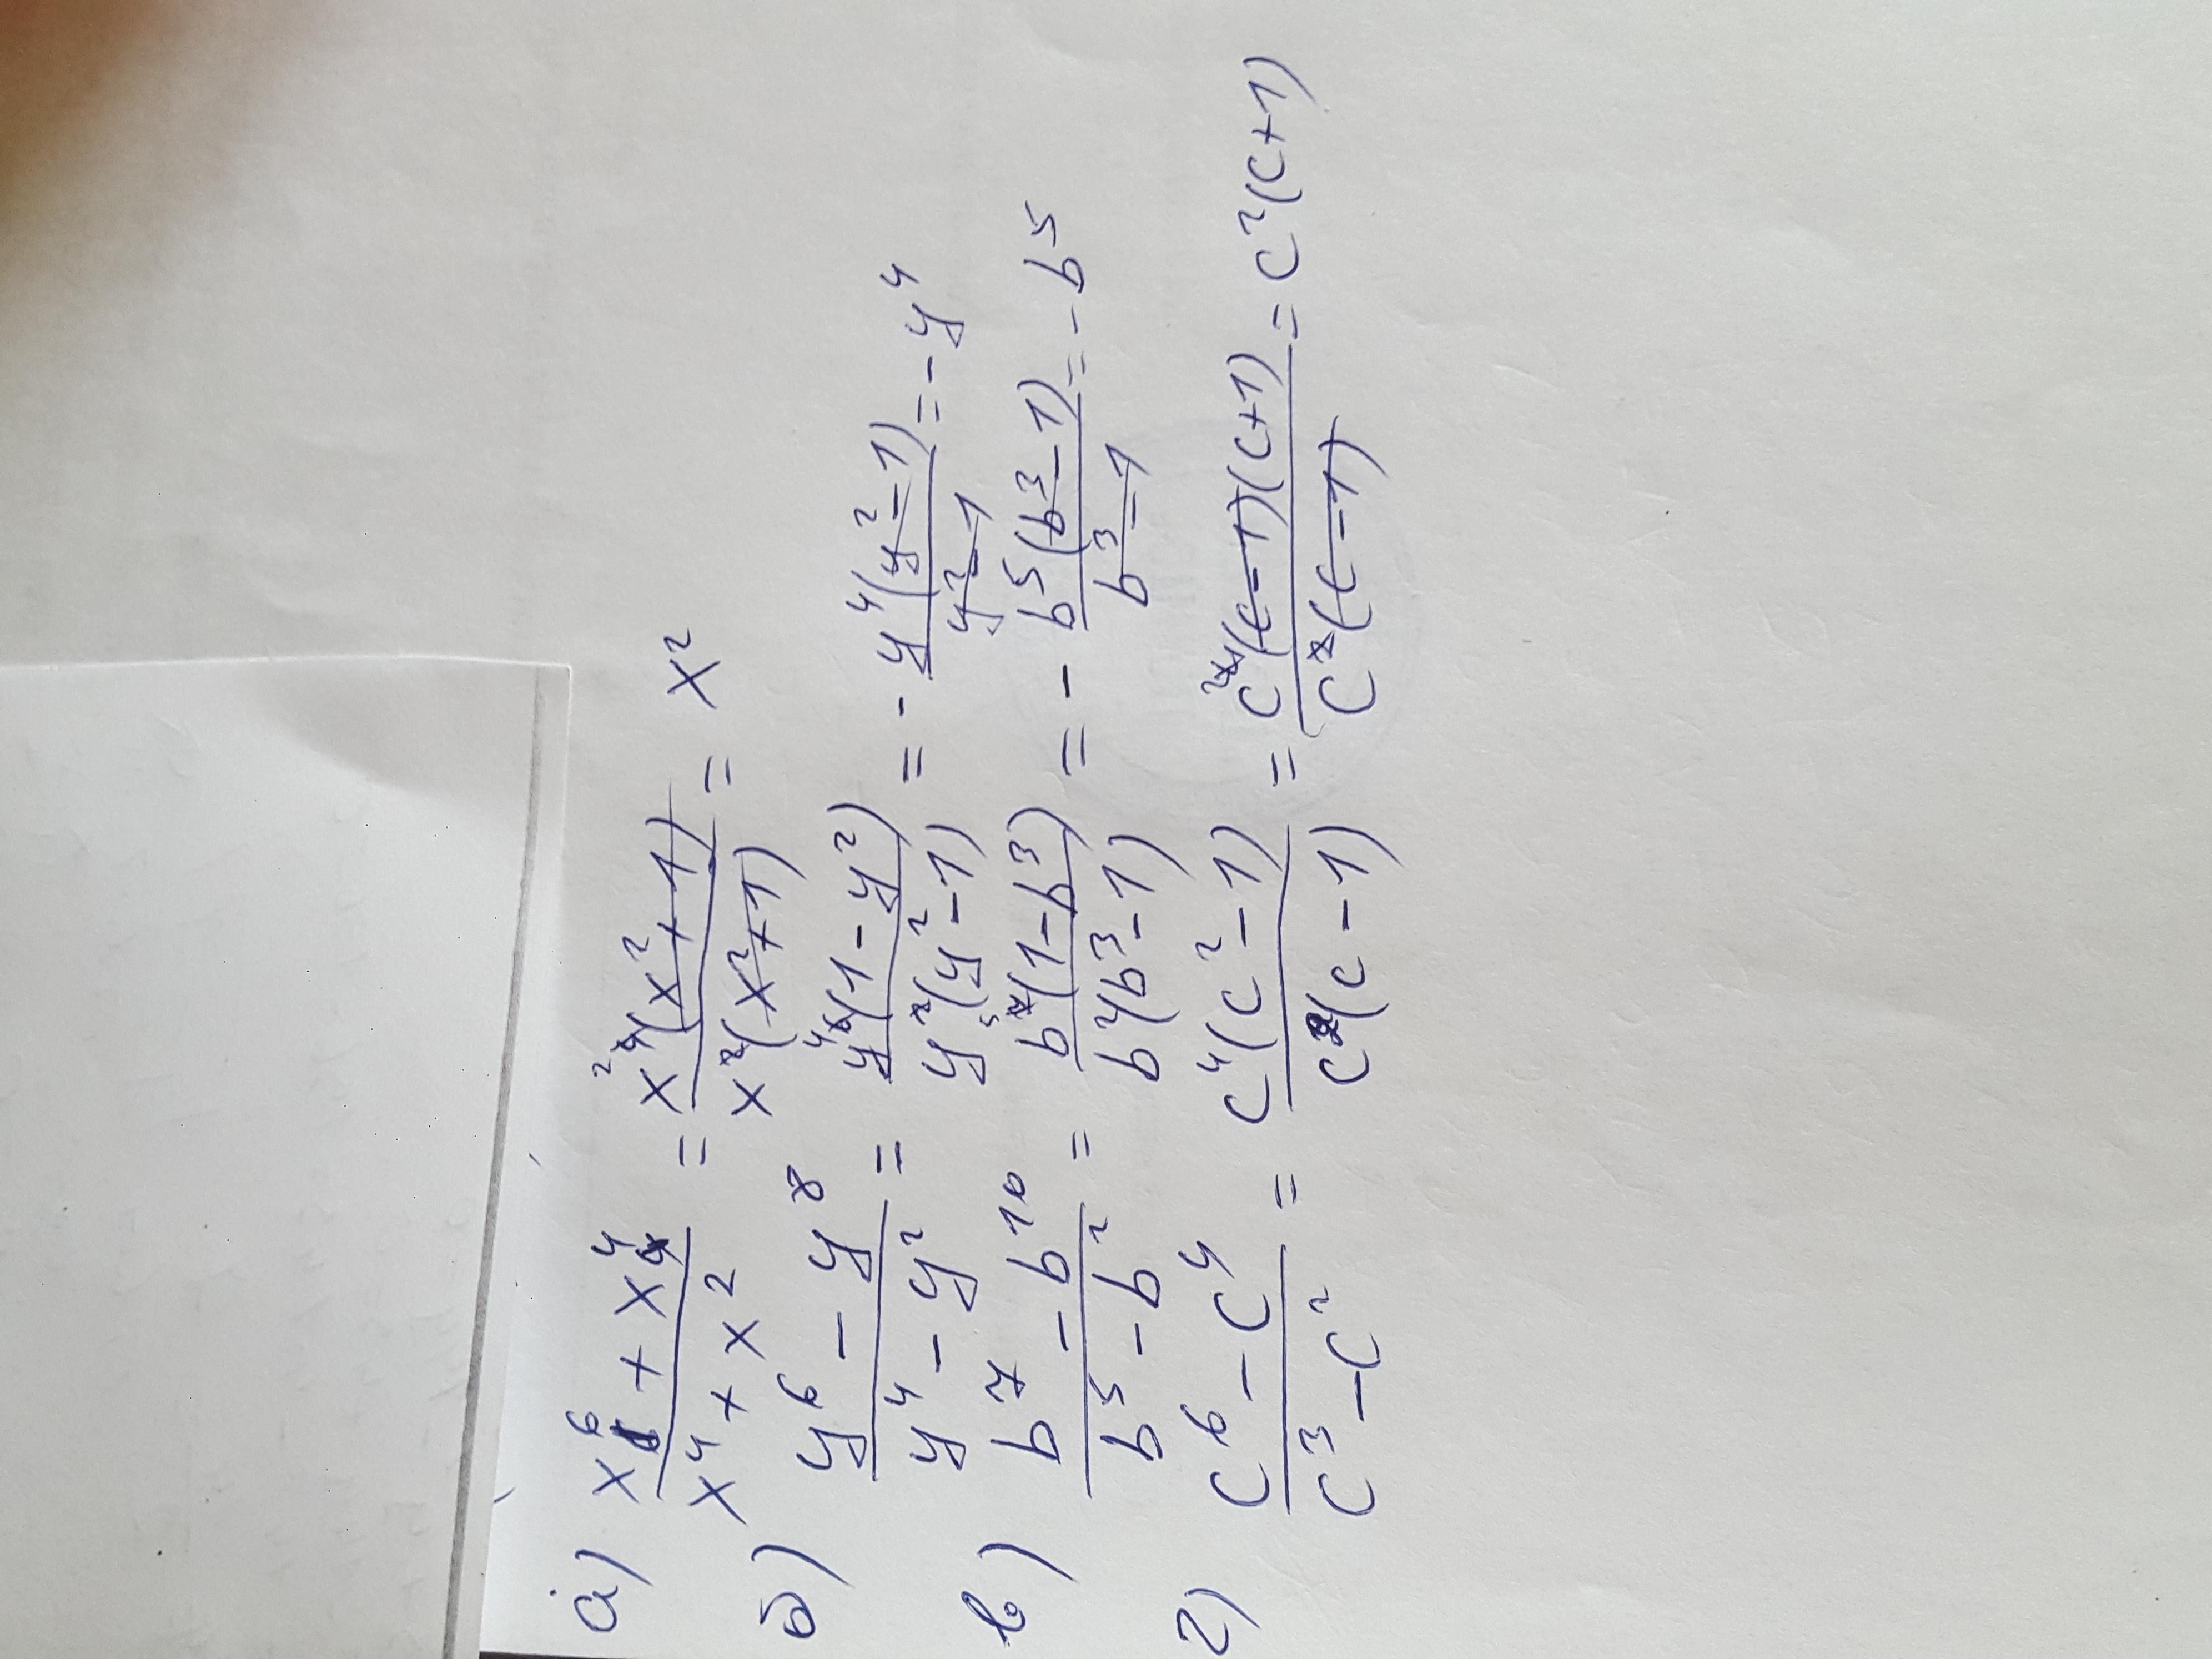 а) (x⁶ + x⁴)/(x⁴ + x²) = x⁴(x² + 1)/x²(x² + 1) = x²
б) (y⁶ − y⁸)/(y⁴ − y²) = y⁶(1 − y²)/y²(y² − 1) = − y⁴(y² − 1)/(y² − 1) = − y⁴
в) (b⁷ − b¹⁰)/(b⁵ − b²) = b⁷(1 − b³)/b²(b³ − 1) = − b⁵(b³ − 1)/(b³ − 1) = − b⁵
г) (c⁶ − c⁴)/(c³ − c²) = c⁴(c² − 1)/c²(c − 1) = c⁴(c − 1)(c + 1)/c²(c − 1) = c²(c + 1)